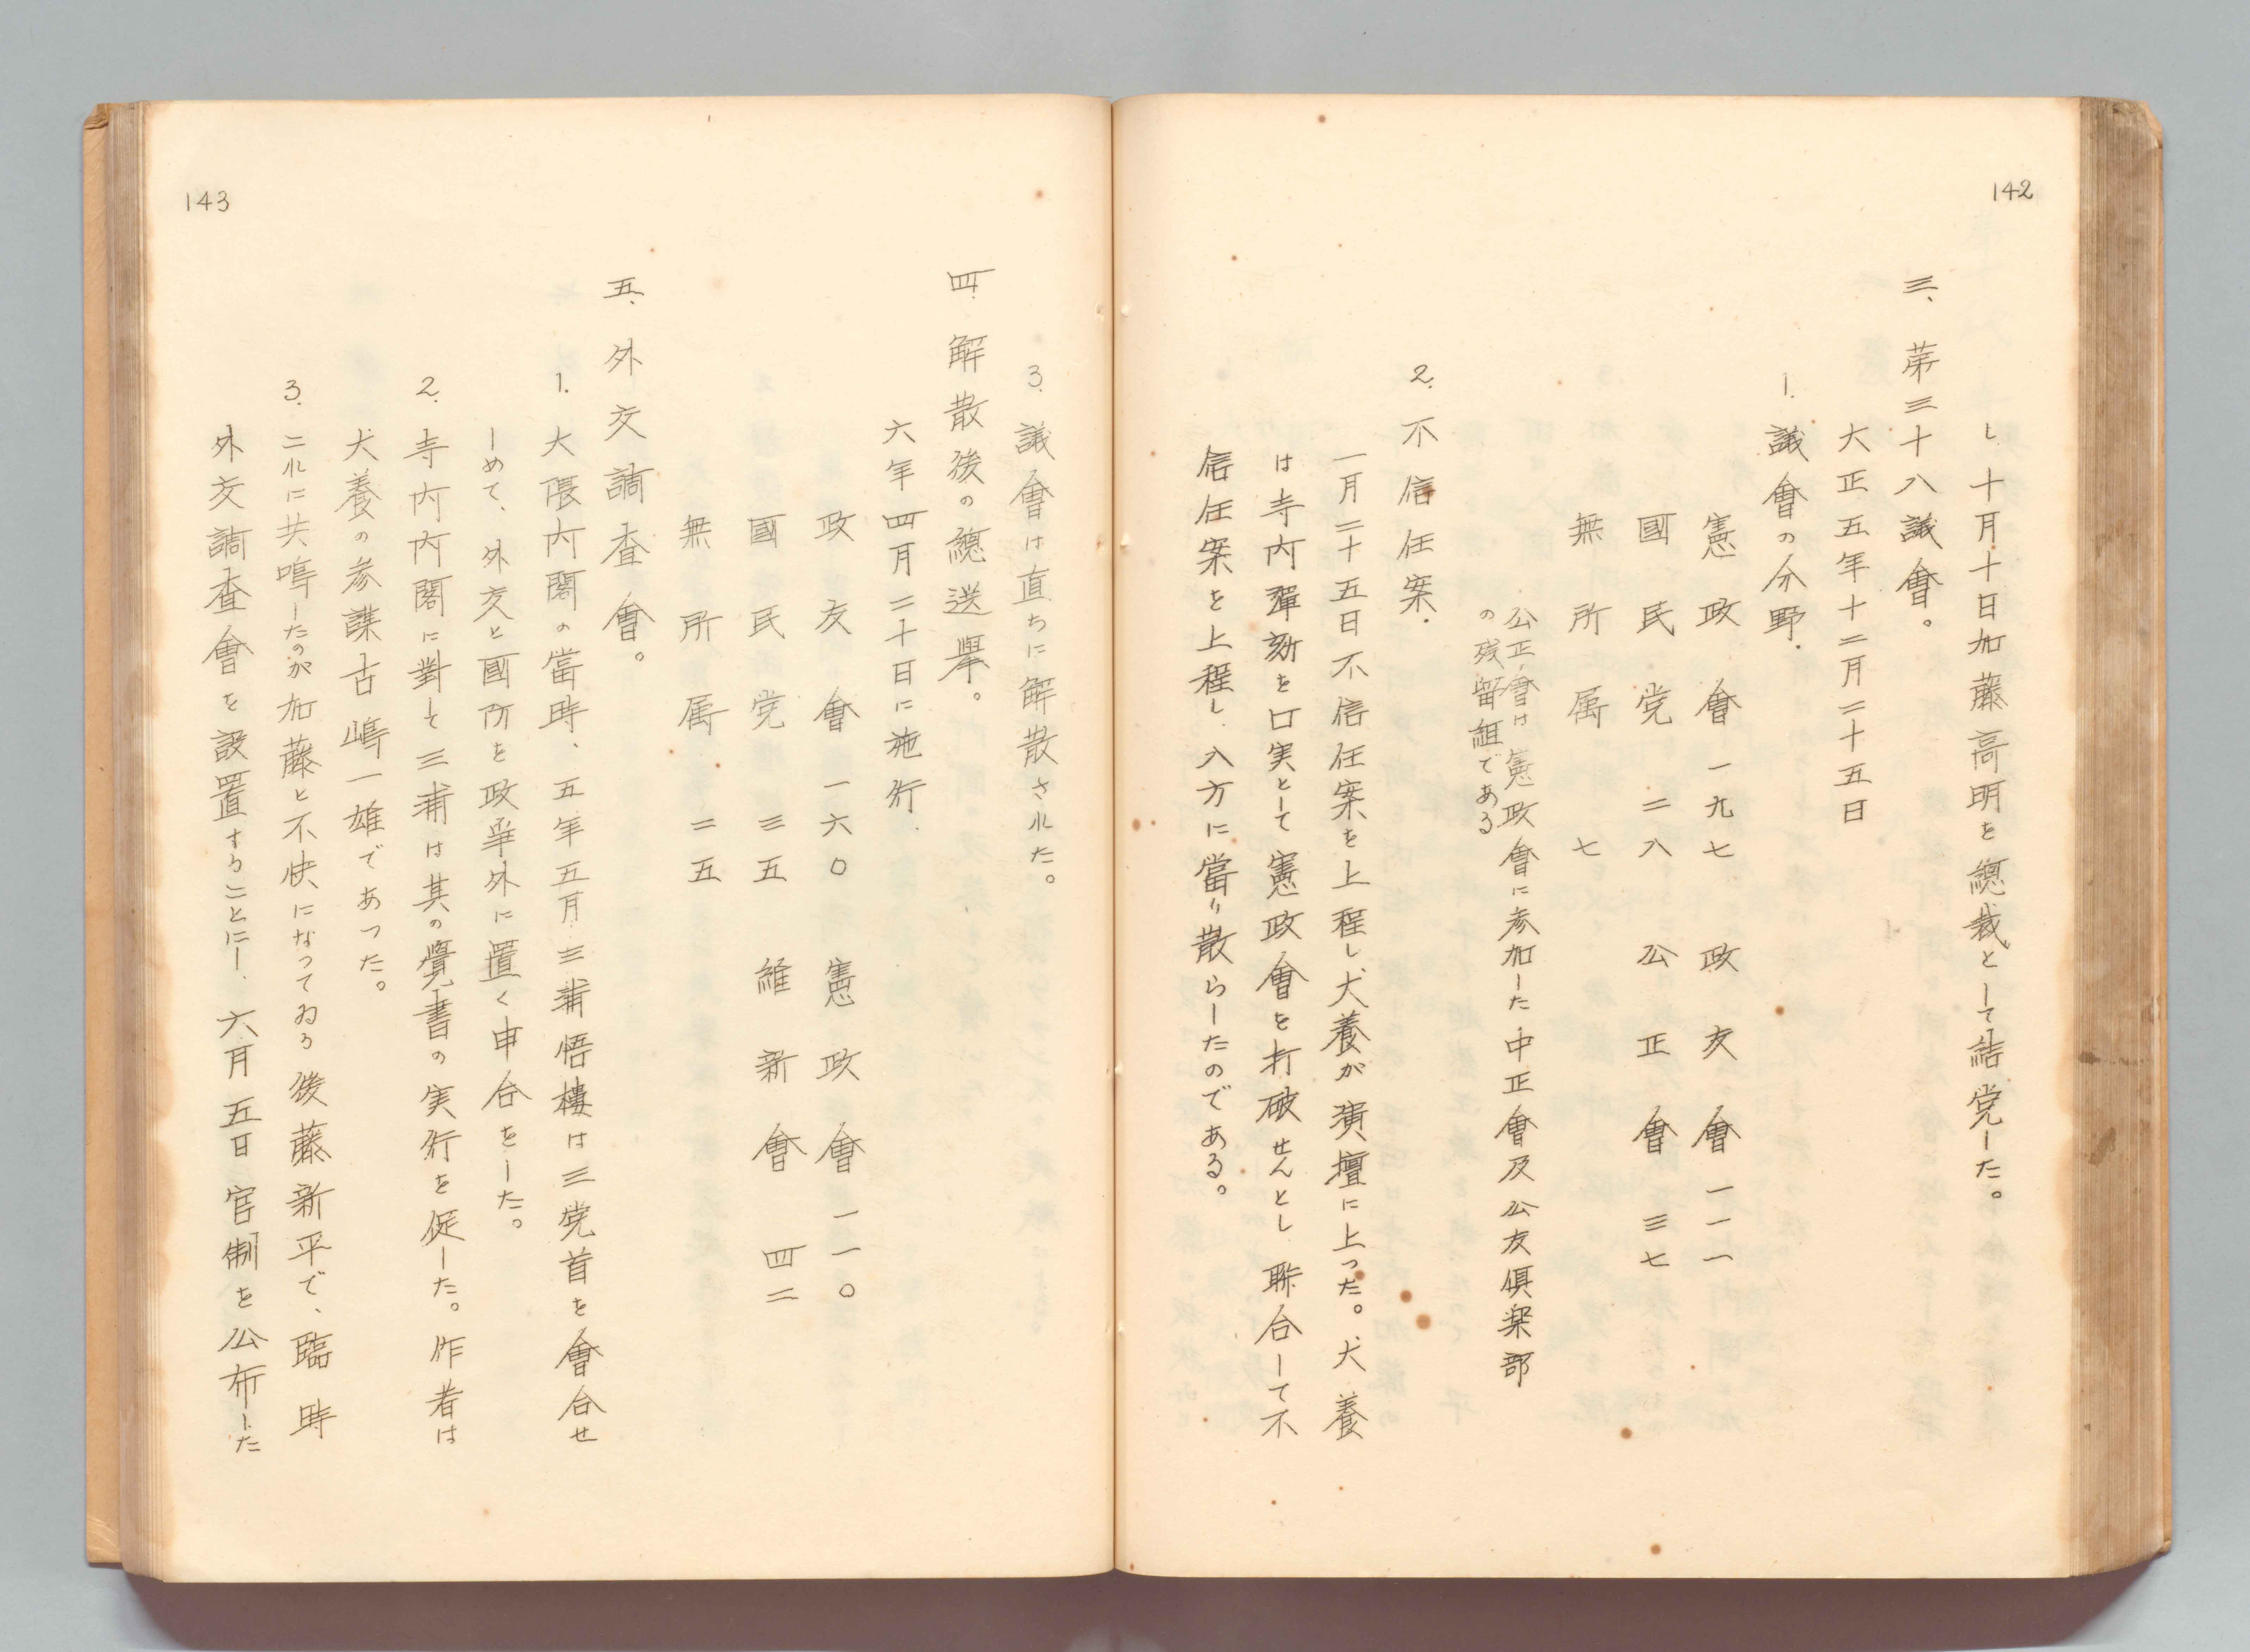 142
し、十月十日加藤高明を總裁として結党した。
三、第三十八議會。
大正五年十二月二十五日
1. 議會の分野.
憲政會 一九七 政友會 一一一
國民党 二八 公正會 三七
無所属 七
公正會は憲政會に参加した中正會及公友倶楽部
の残留組である
2. 不信任案.
一月二十五日不信任案を上程し犬養が演壇に上った。犬養
は寺内彈劾を口実として憲政會を打破せんとし聯合して不
信任案を上程し、八方に當り散らしたのである。
143
3. 議會は直ちに解散された。
四. 解散後の總選擧。
六年四月二十日に施行.
政友會 一六〇 憲政會 一一〇
國民党 三五 維新會 四二
無所属 二五
五、外交調査會。
1. 大隈内閣の當時、五年五月三浦悟樓は三党首を會合せ
しめて、外交と國防を政争外に置く申合をした。
2. 寺内内閣に對して三浦は其の覺書の実行を促した。作者は
犬養の参謀古嶋一雄であった。
3. これに共鳴したのが加藤と不快になってゐる後藤新平で、臨時
外交調査會を設置することにし、六月五日官制を公布した